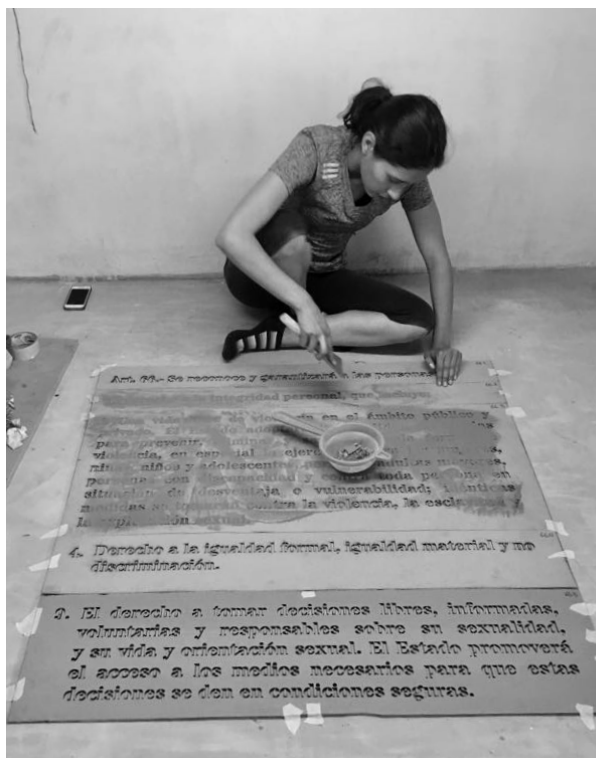 Art. 66.- Se reconoce y garantizará a las personas
integridad personal, que incluye
vida de violencia en el ámbito público y
para prevenir,
violencia, en especial la ejercida
niñas, niños y adolescentes, mayores,
personas con discapacidad y contra toda persona en
situación de desventaja o vulnerabilidad; idénticas
medidas se tomarán contra la violencia, la esclavitud y
la explotación sexual.
4. Derecho a la igualdad formal, igualdad material y no
discriminación.
9. El derecho a tomar decisiones libres, informadas,
voluntarias y responsables sobre su sexualidad,
y su vida y orientación sexual. El Estado promoverá
el acceso a los medios necesarios para que estas
decisiones se den en condiciones seguras.